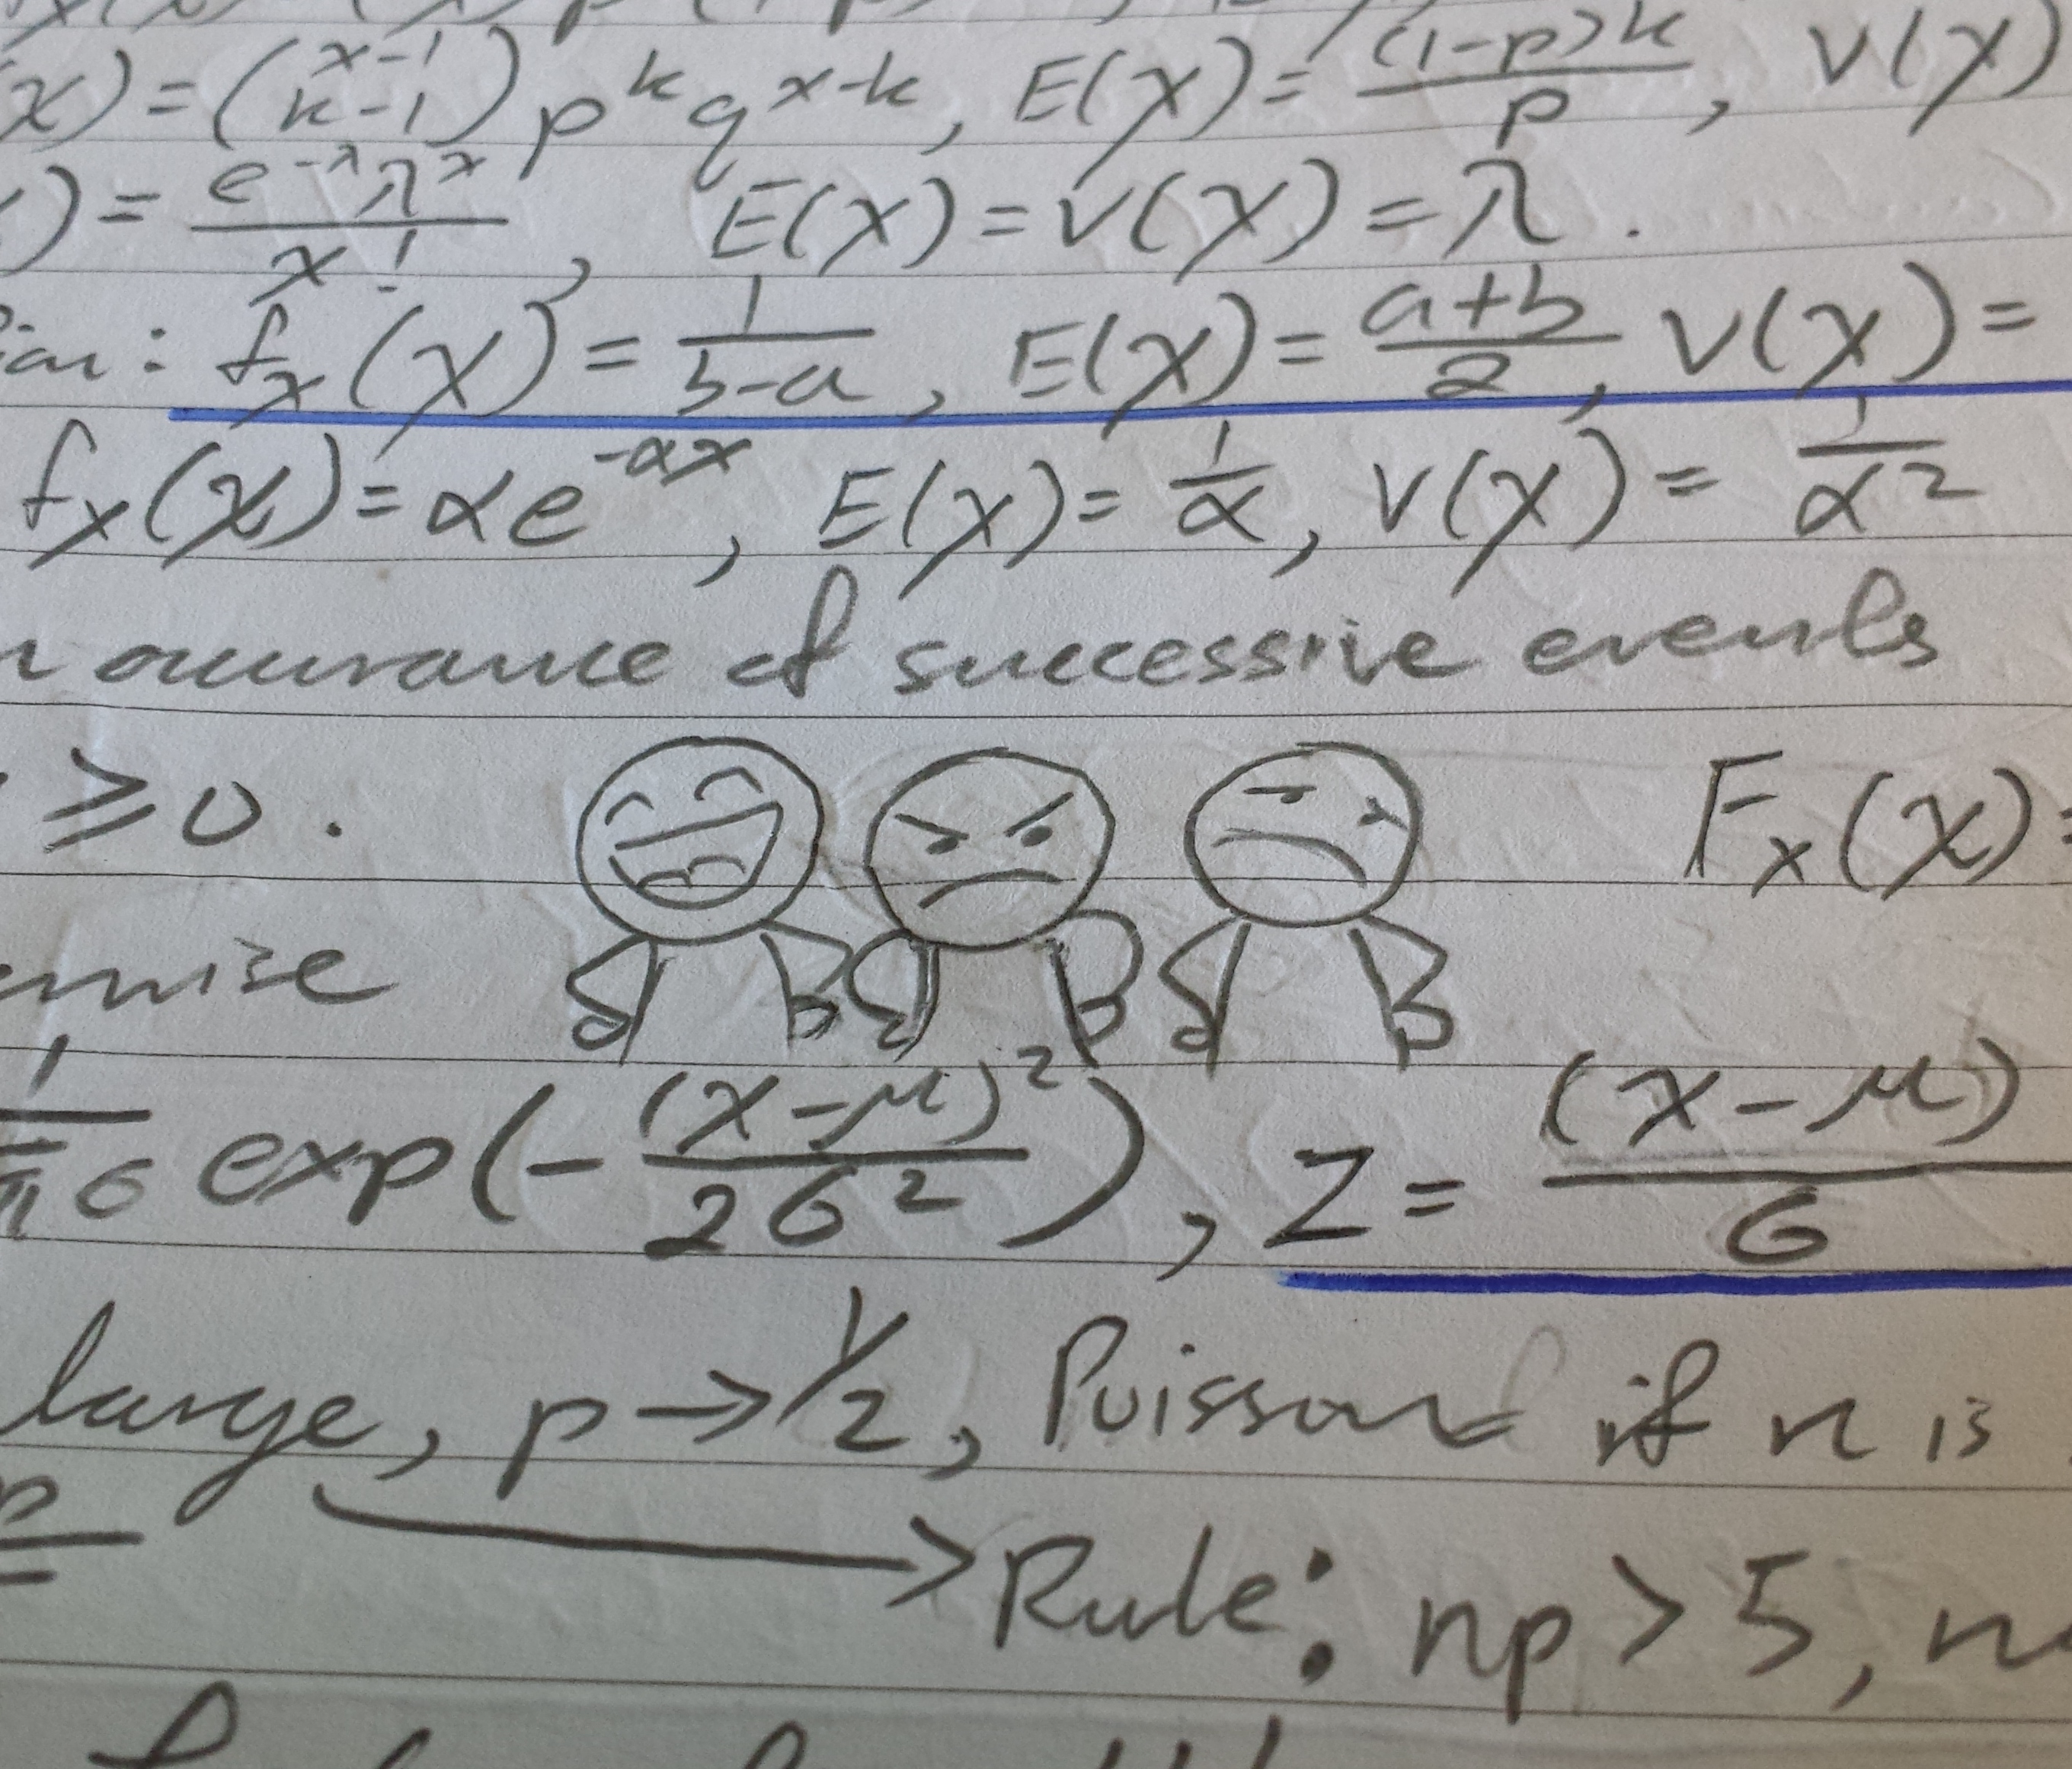 x) = (x-1 k-1) p^k q^x-k, E(X) = (1-p)k/p, V(X)
) = e^-λ λ^x / x!, E(X) = V(X) = λ.
ion: f_x(x) = 1/b-a, E(X) = a+b/2, V(X) =
f_x(x) = αe^-αx, E(X) = 1/α, V(X) = 1/α^2
n occurance of successive events
≥ 0. F_x(x) =
erwise
1/√π σ exp(-(x-μ)^2/2σ^2), Z = (x-μ)/σ
large, p → 1/2, Poisson if n is
Rule: np > 5, n